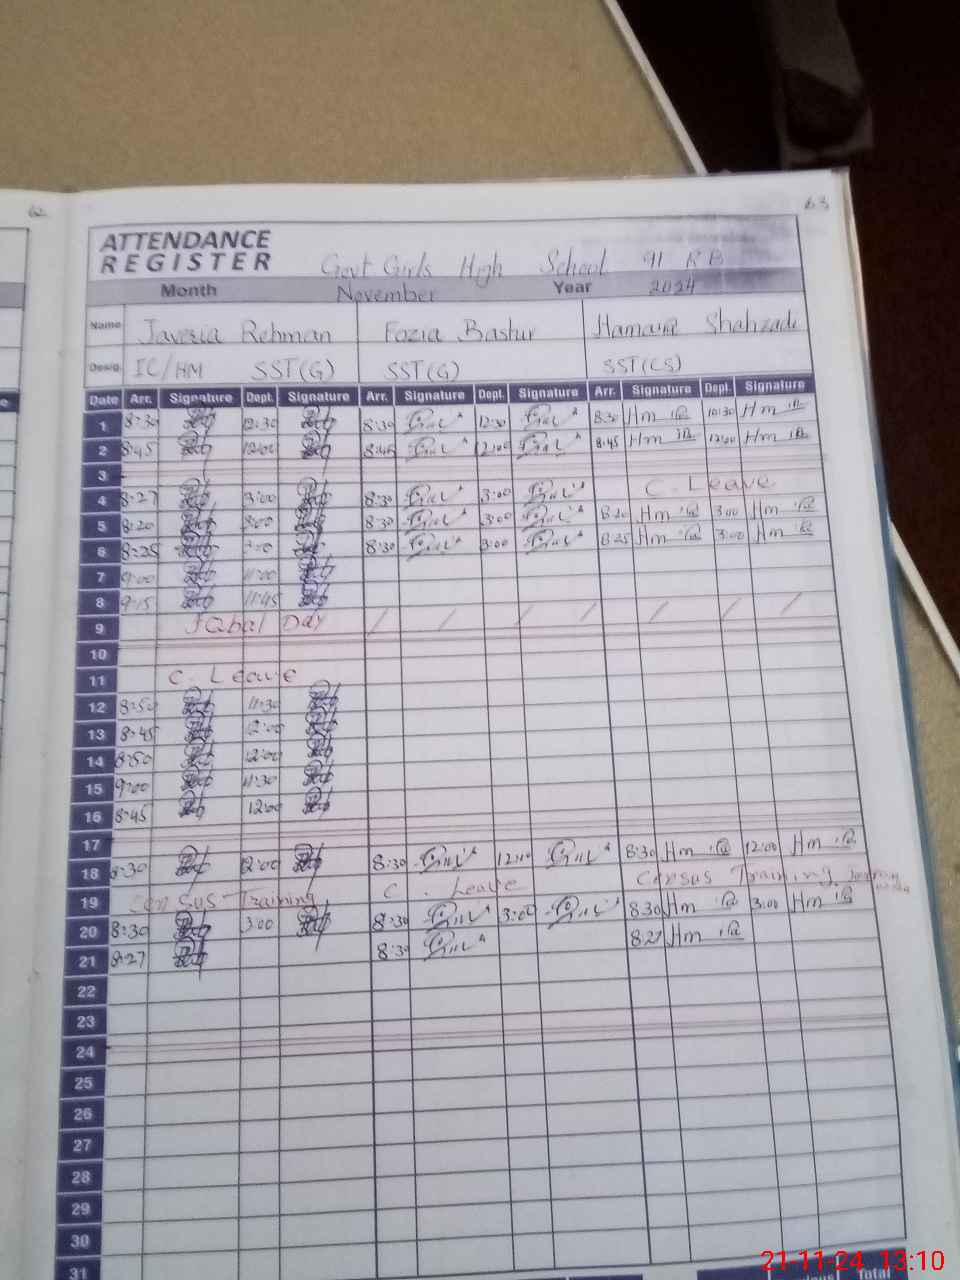 62
63
ATTENDANCE
REGISTER
Govt Girls High School 91 RB
Month November Year 2024
Name Javeria Rehman Fozia Bashir Hamaira Shahzadi
Desig. IC/HM SST(G) SST(G) SST(CS)
Date Arr. Signature Dept. Signature Arr. Signature Dept. Signature Arr. Signature Dept. Signature
1 8:30 12:30 8:30 12:30 8:30 Hm 12:30 Hm
2 8:45 12:00 8:45 12:00 8:45 Hm 12:00 Hm
3
4 8:27 3:00 8:30 3:00 C. Leave
5 8:20 3:00 8:30 3:00 8:20 Hm 3:00 Hm
6 8:25 3:00 8:30 3:00 8:25 Hm 3:00 Hm
7 9:00 11:00
8 9:15 11:45
9 Iqbal Day
10
11 C. Leave
12 8:50 11:30
13 8:45 12:00
14 8:50 12:00
15 9:00 11:30
16 8:45 12:00
17
18 8:30 12:00 8:30 12:00 8:30 Hm 12:00 Hm
19 Census Training C. Leave Census Training
20 8:30 3:00 8:30 3:00 8:30 Hm 3:00 Hm
21 8:27 8:30 8:27 Hm
22
23
24
25
26
27
28
29
30
31
Total
21-11-24 13:10